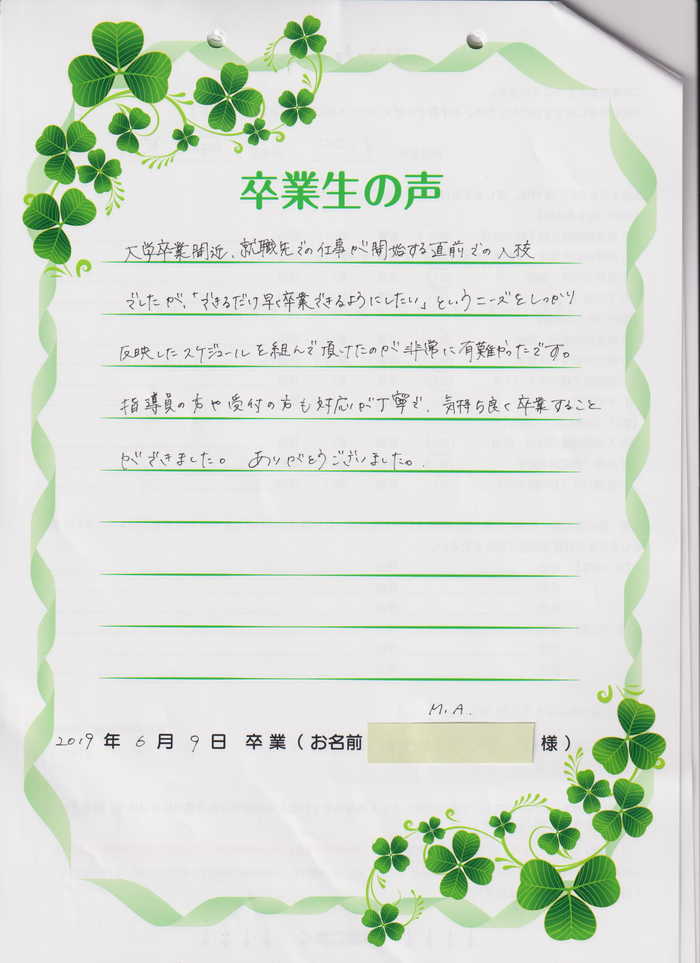 卒業生の声
大学卒業間近、就職先での仕事が開始する直前での入校
でしたが、「できるだけ早く卒業できるようにしたい」というニーズをしっかり
反映したスケジュールを組んで頂けたのが非常に有難かったです。
指導員の方や受付の方も対応が丁寧で、気持ち良く卒業すること
ができました。 ありがとうございました。
M.A.
2019年6月9日 卒業(お名前 様)